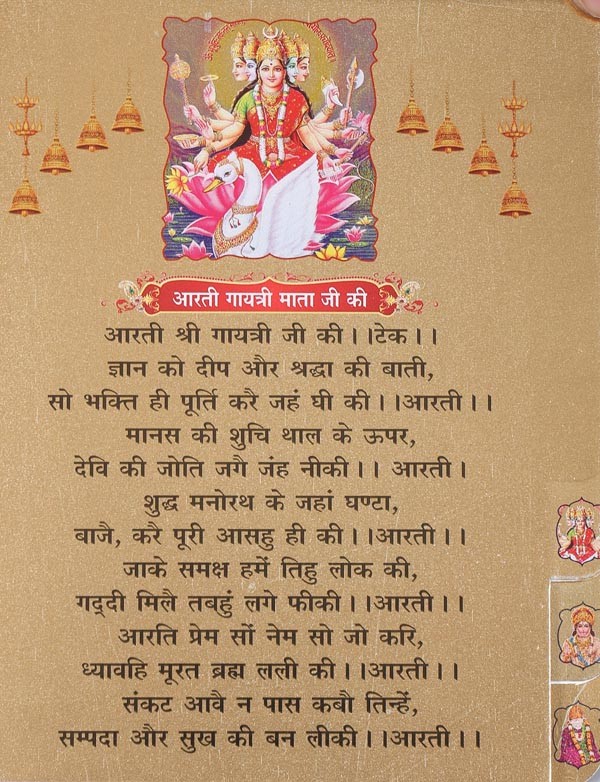 आरती गायत्री माता जी की
आरती श्री गायत्री जी की।।टेक।।
ज्ञान को दीप और श्रद्धा की बाती,
सो भक्ति ही पूर्ति करै जहं घी की।।आरती।।
मानस की शुचि थाल के ऊपर,
देवि की जोति जगै जंह नीकी।। आरती।
शुद्ध मनोरथ के जहां घण्टा,
बाजै, करै पूरी आसहु ही की।।आरती।।
जाके समक्ष हमें तिहु लोक की,
गद्दी मिलै तबहुं लगे फीकी।।आरती।।
आरति प्रेम सों नेम सो जो करि,
ध्यावहि मूरत ब्रह्म लली की।।आरती।।
संकट आवै न पास कबौ तिन्हें,
सम्पदा और सुख की बन लीकी।।आरती।।